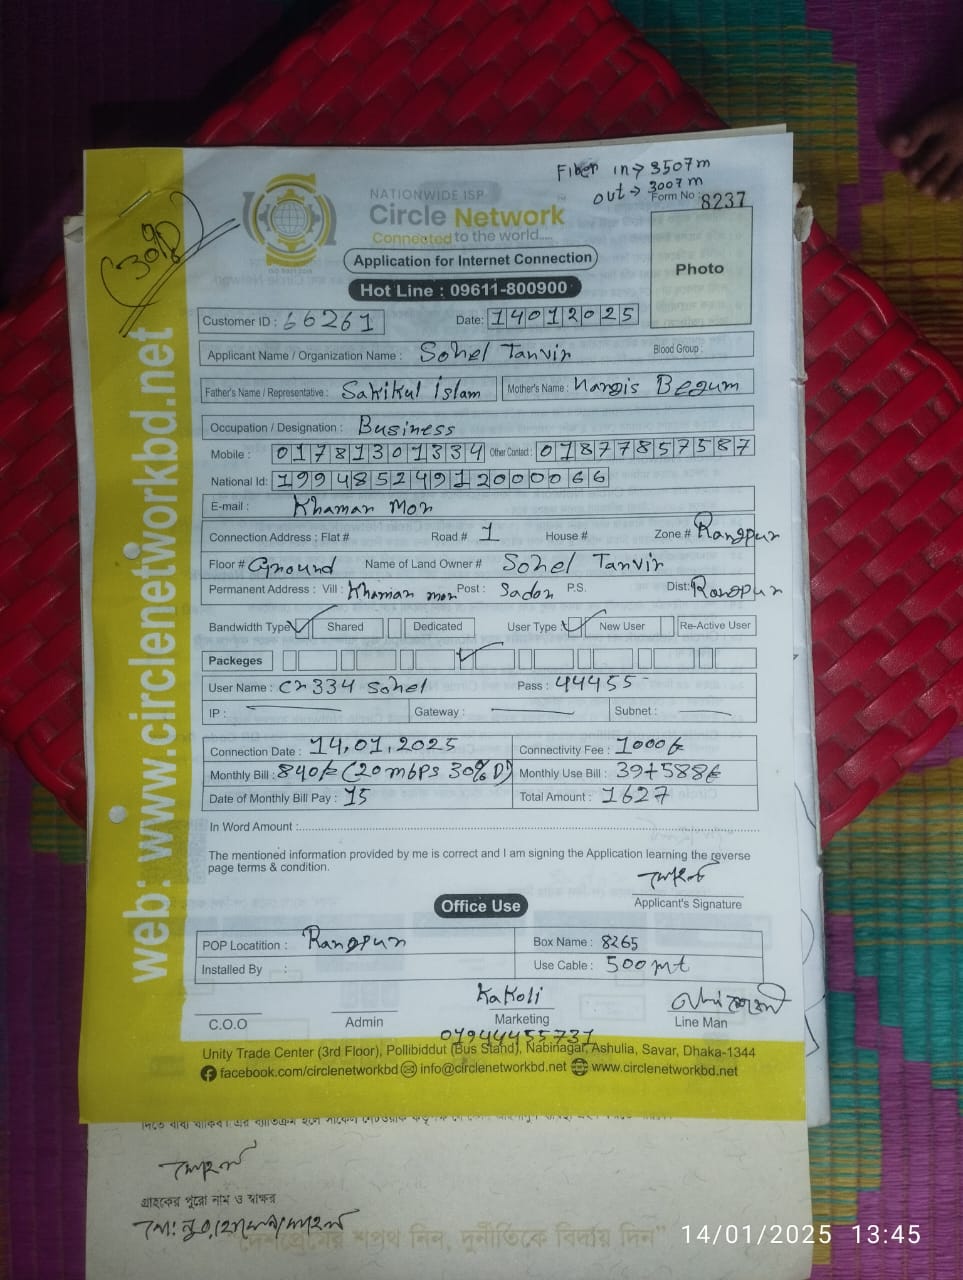 Fiber in → 3507 m
out → 3007 m
(30% D)
NATIONWIDE ISP
Circle Network
Connected to the world....
Form No : 8237
Photo
Application for Internet Connection
Hot Line : 09611-800900
Customer ID : 66261 Date: 14012025
Applicant Name / Organization Name : Sohel Tanvir Blood Group :
Father's Name / Representative : Sakikul islam Mother's Name : Nargis Begum
Occupation / Designation : Business
Mobile : 01781301334 Other Contact : 01877857587
National Id: 19948524912000066
E-mail : Khaman Mor
Connection Address : Flat # Road # 1 House # Zone # Rangpur
Floor # Ground Name of Land Owner # Sohel Tanvir
Permanent Address : Vill : Khaman mor Post : Sador P.S. Dist: Rangpur
Bandwidth Type Shared Dedicated User Type New User Re-Active User
Packeges
User Name : cn334 sohel Pass : 44455
IP : Gateway : Subnet :
Connection Date : 14.01.2025 Connectivity Fee : 1000৳
Monthly Bill : 840৳ (20 mbps 30% D) Monthly Use Bill : 39+588৳
Date of Monthly Bill Pay : 15 Total Amount : 1627
In Word Amount :
The mentioned information provided by me is correct and I am signing the Application learning the reverse
page terms & condition.
Applicant's Signature
Office Use
POP Locatition : Rangpur Box Name : 8265
Installed By : Use Cable : 500 mt
Kakoli
C.O.O Admin Marketing Line Man
01944455731
Unity Trade Center (3rd Floor), Pollibiddut (Bus Stand), Nabinagar, Ashulia, Savar, Dhaka-1344
facebook.com/circlenetworkbd info@circlenetworkbd.net www.circlenetworkbd.net
web: www.circlenetworkbd.net
গ্রাহকের পুরো নাম ও স্বাক্ষর
দেশপ্রেমের শপথ নিন, দুর্নীতিকে বিদায় দিন"
14/01/2025 13:45